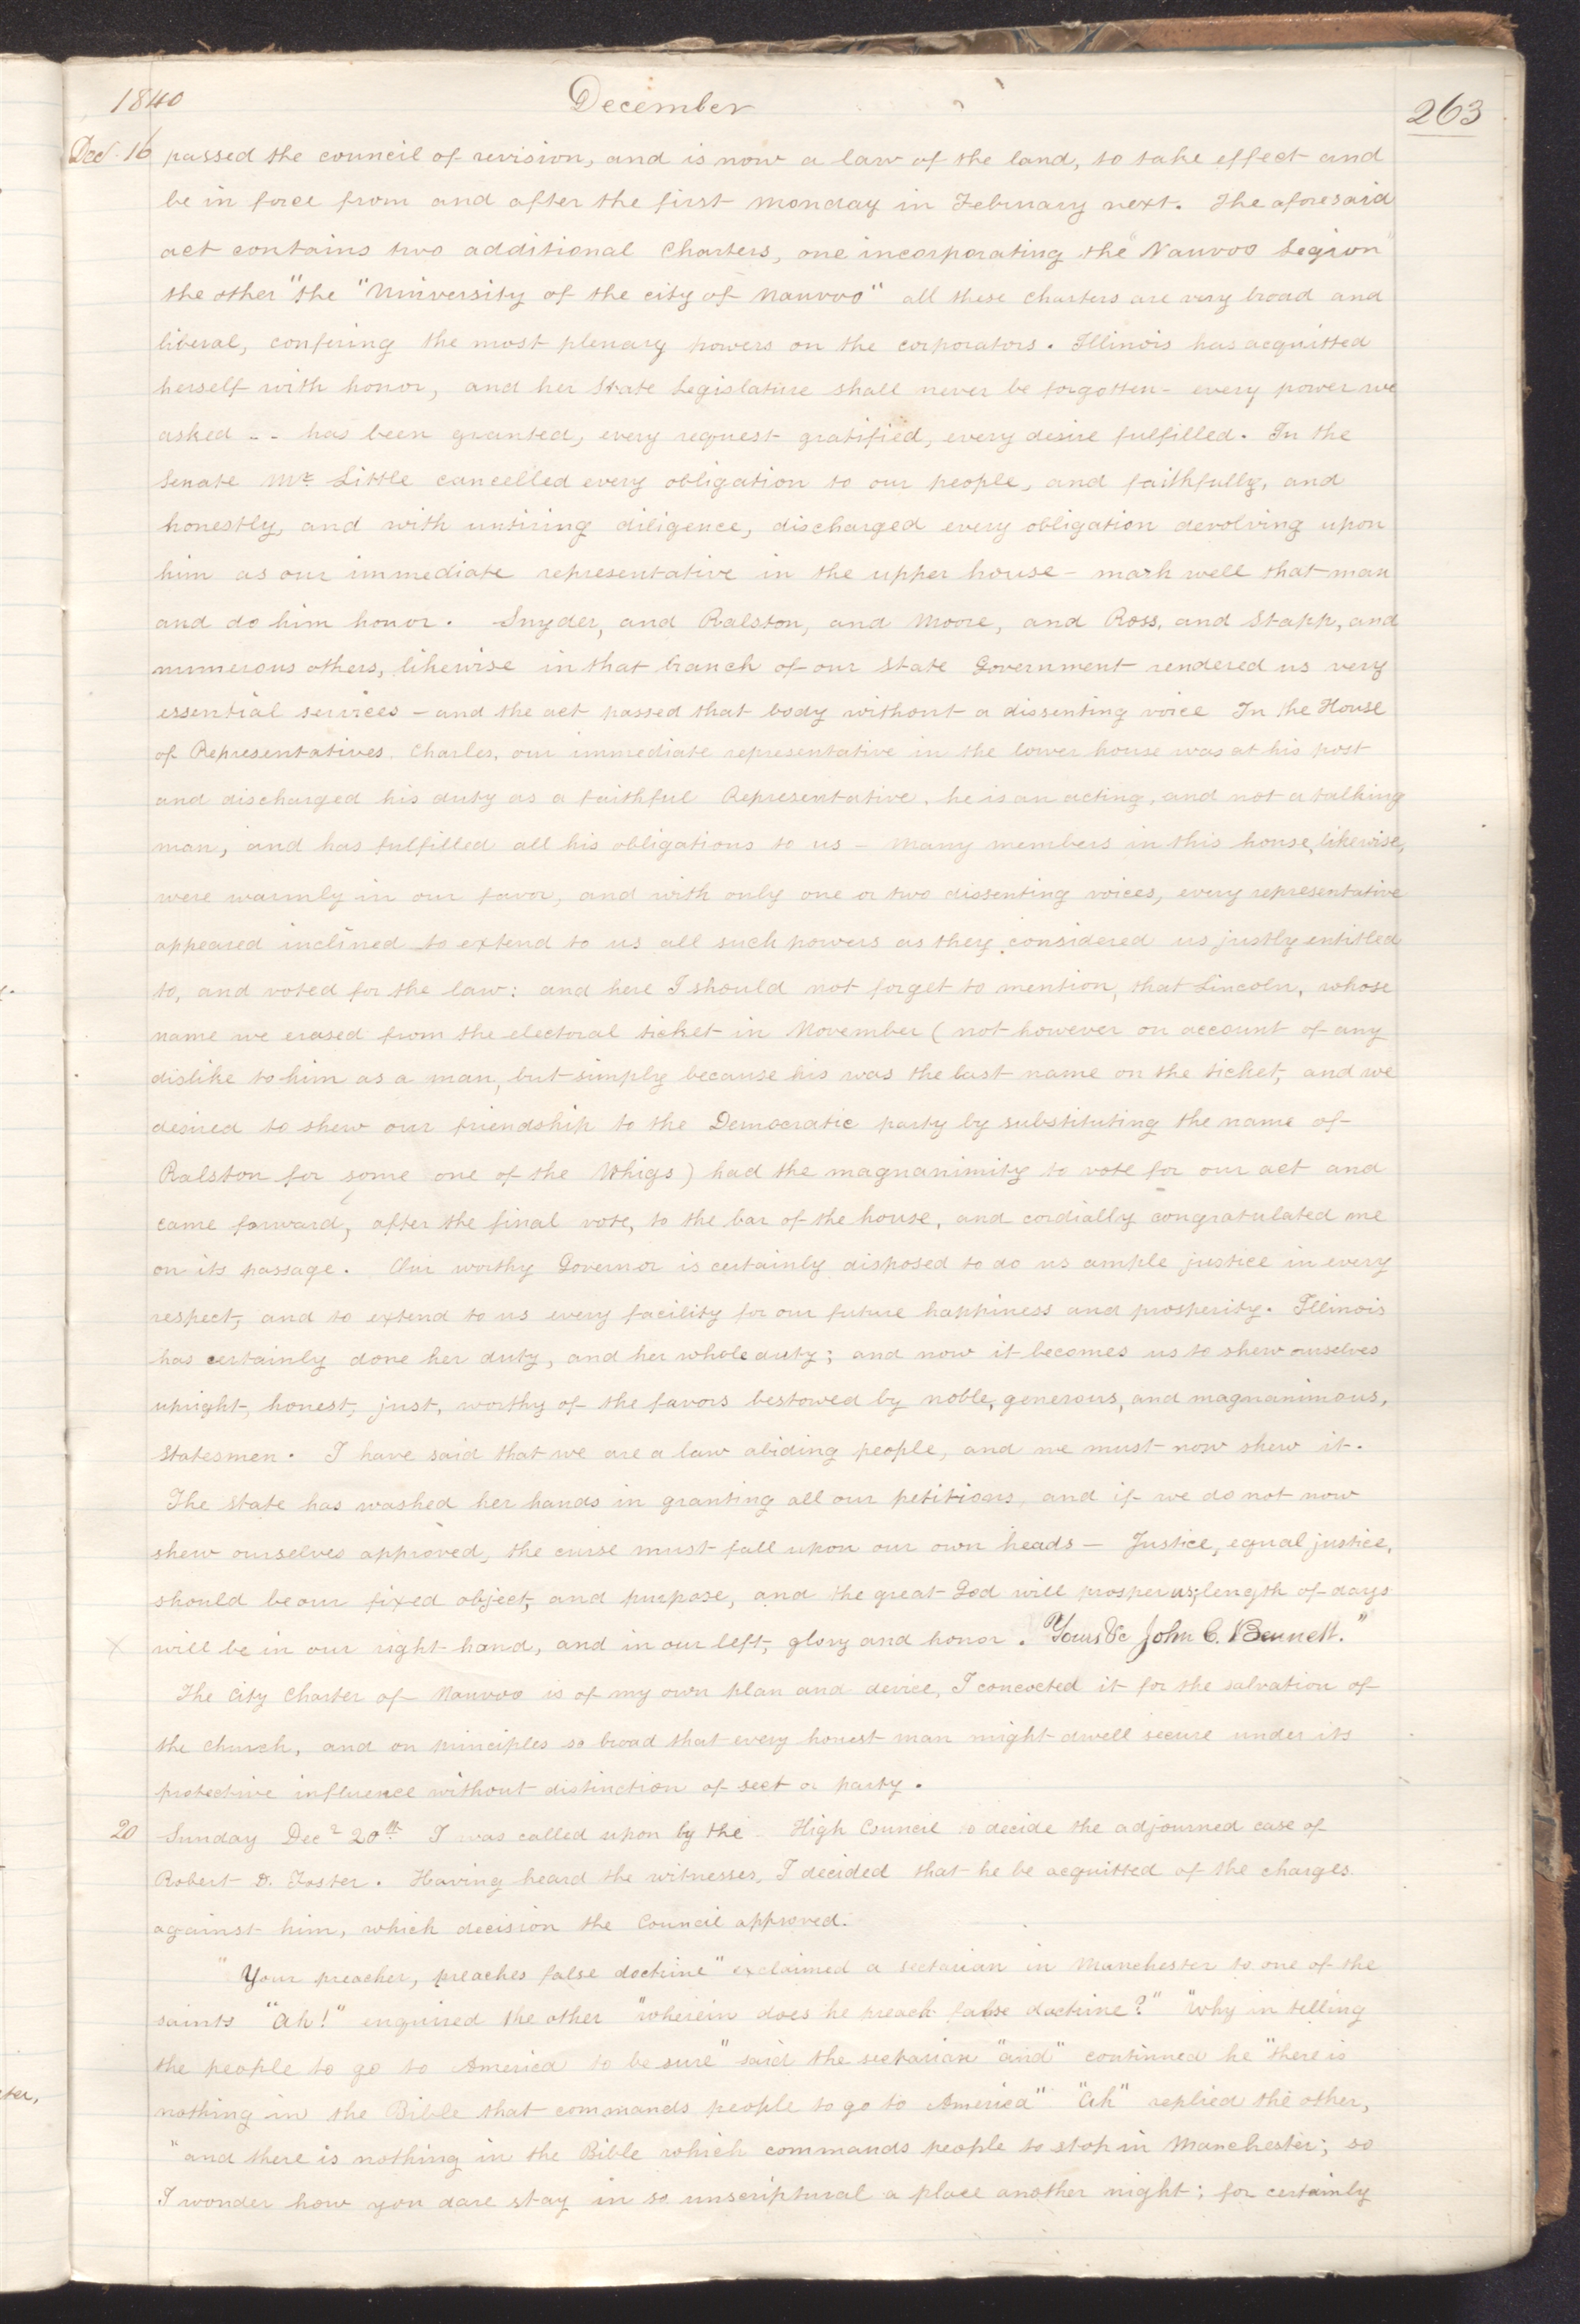 1840 December 263
Dec. 16 passed the council of revision, and is now a law of the land, to take effect and
be in force from and after the first Monday in February next. The aforesaid
act contains two additional Charters, one incorporating the "Nauvoo Legion"
the other "the "University of the city of Nauvoo" all these charters are very broad and
liberal, confering the most plenary powers on the corporators. Illinois has acquitted
herself with honor, and her State Legislature shall never be forgotten - every power we
asked - - has been granted, every request gratified, every desire fulfilled. In the
Senate Mr. Little cancelled every obligation to our people, and faithfully, and
honestly, and with untiring diligence, discharged every obligation devolving upon
him as our immediate representative in the upper house - mark well that man
and do him honor. Snyder, and Ralston, and Moore, and Ross, and Stapp, and
numerous others, likewise in that branch of our State Government rendered us very
essential services - and the act passed that body without a dissenting voice In the House
of Representatives. Charles, our immediate representative in the lower house was at his post
and discharged his duty as a faithful Representative, he is an acting, and not a talking
man, and has fulfilled all his obligations to us - Many members in this house, likewise,
were warmly in our favor, and with only one or two dissenting voices, every representative
appeared inclined to extend to us all such powers as they considered us justly entitled
to, and voted for the law: and here I should not forget to mention, that Lincoln, whose
name we erased from the electoral ticket in November (not however on account of any
dislike to him as a man, but simply because his was the last name on the ticket, and we
desired to shew our friendship to the Democratic party by substituting the name of
Ralston for some one of the Whigs) had the magnanimity to vote for our act and
came forward, after the final vote, to the bar of the house, and cordially congratulated me
on its passage. Our worthy Governor is certainly disposed to do us ample justice in every
respect, and to extend to us every facility for our future happiness and prosperity. Illinois
has certainly done her duty, and her whole duty; and now it becomes us to shew ourselves
upright, honest, just, worthy of the favors bestowed by noble, generous, and magnanimous,
statesmen. I have said that we are a law abiding people, and we must now shew it.
The State has washed her hands in granting all our petitions, and if we do not now
shew ourselves approved, the curse must fall upon our own heads - Justice, equal justice,
should be our fixed object, and purpose, and the great God will prosper us; length of days
X will be in our right hand, and in our left, glory and honor. Yours &c John C. Bennett."
The City Charter of Nauvoo is of my own plan and device, I concocted it for the salvation of
the church, and on principles so broad that every honest man might dwell secure under its
protective influence without distinction of sect or party.
20 Sunday Decr 20th I was called upon by the High Council to decide the adjourned case of
Robert D. Foster. Having heard the witnesses, I decided that he be acquitted of the charges
against him, which decision the Council approved.
"Your preacher, preaches false doctrine" exclaimed a sectarian in Manchester to one of the
saints "Ah!" enquired the other "wherein does he preach false doctrine?" "Why in telling
the people to go to America to be sure" said the sectarian "and" continued he "there is
nothing in the Bible that commands people to go to America" "Ah" replied the other,
"and there is nothing in the Bible which commands people to stop in Manchester; so
I wonder how you dare stay in so unscriptural a place another night; for certainly